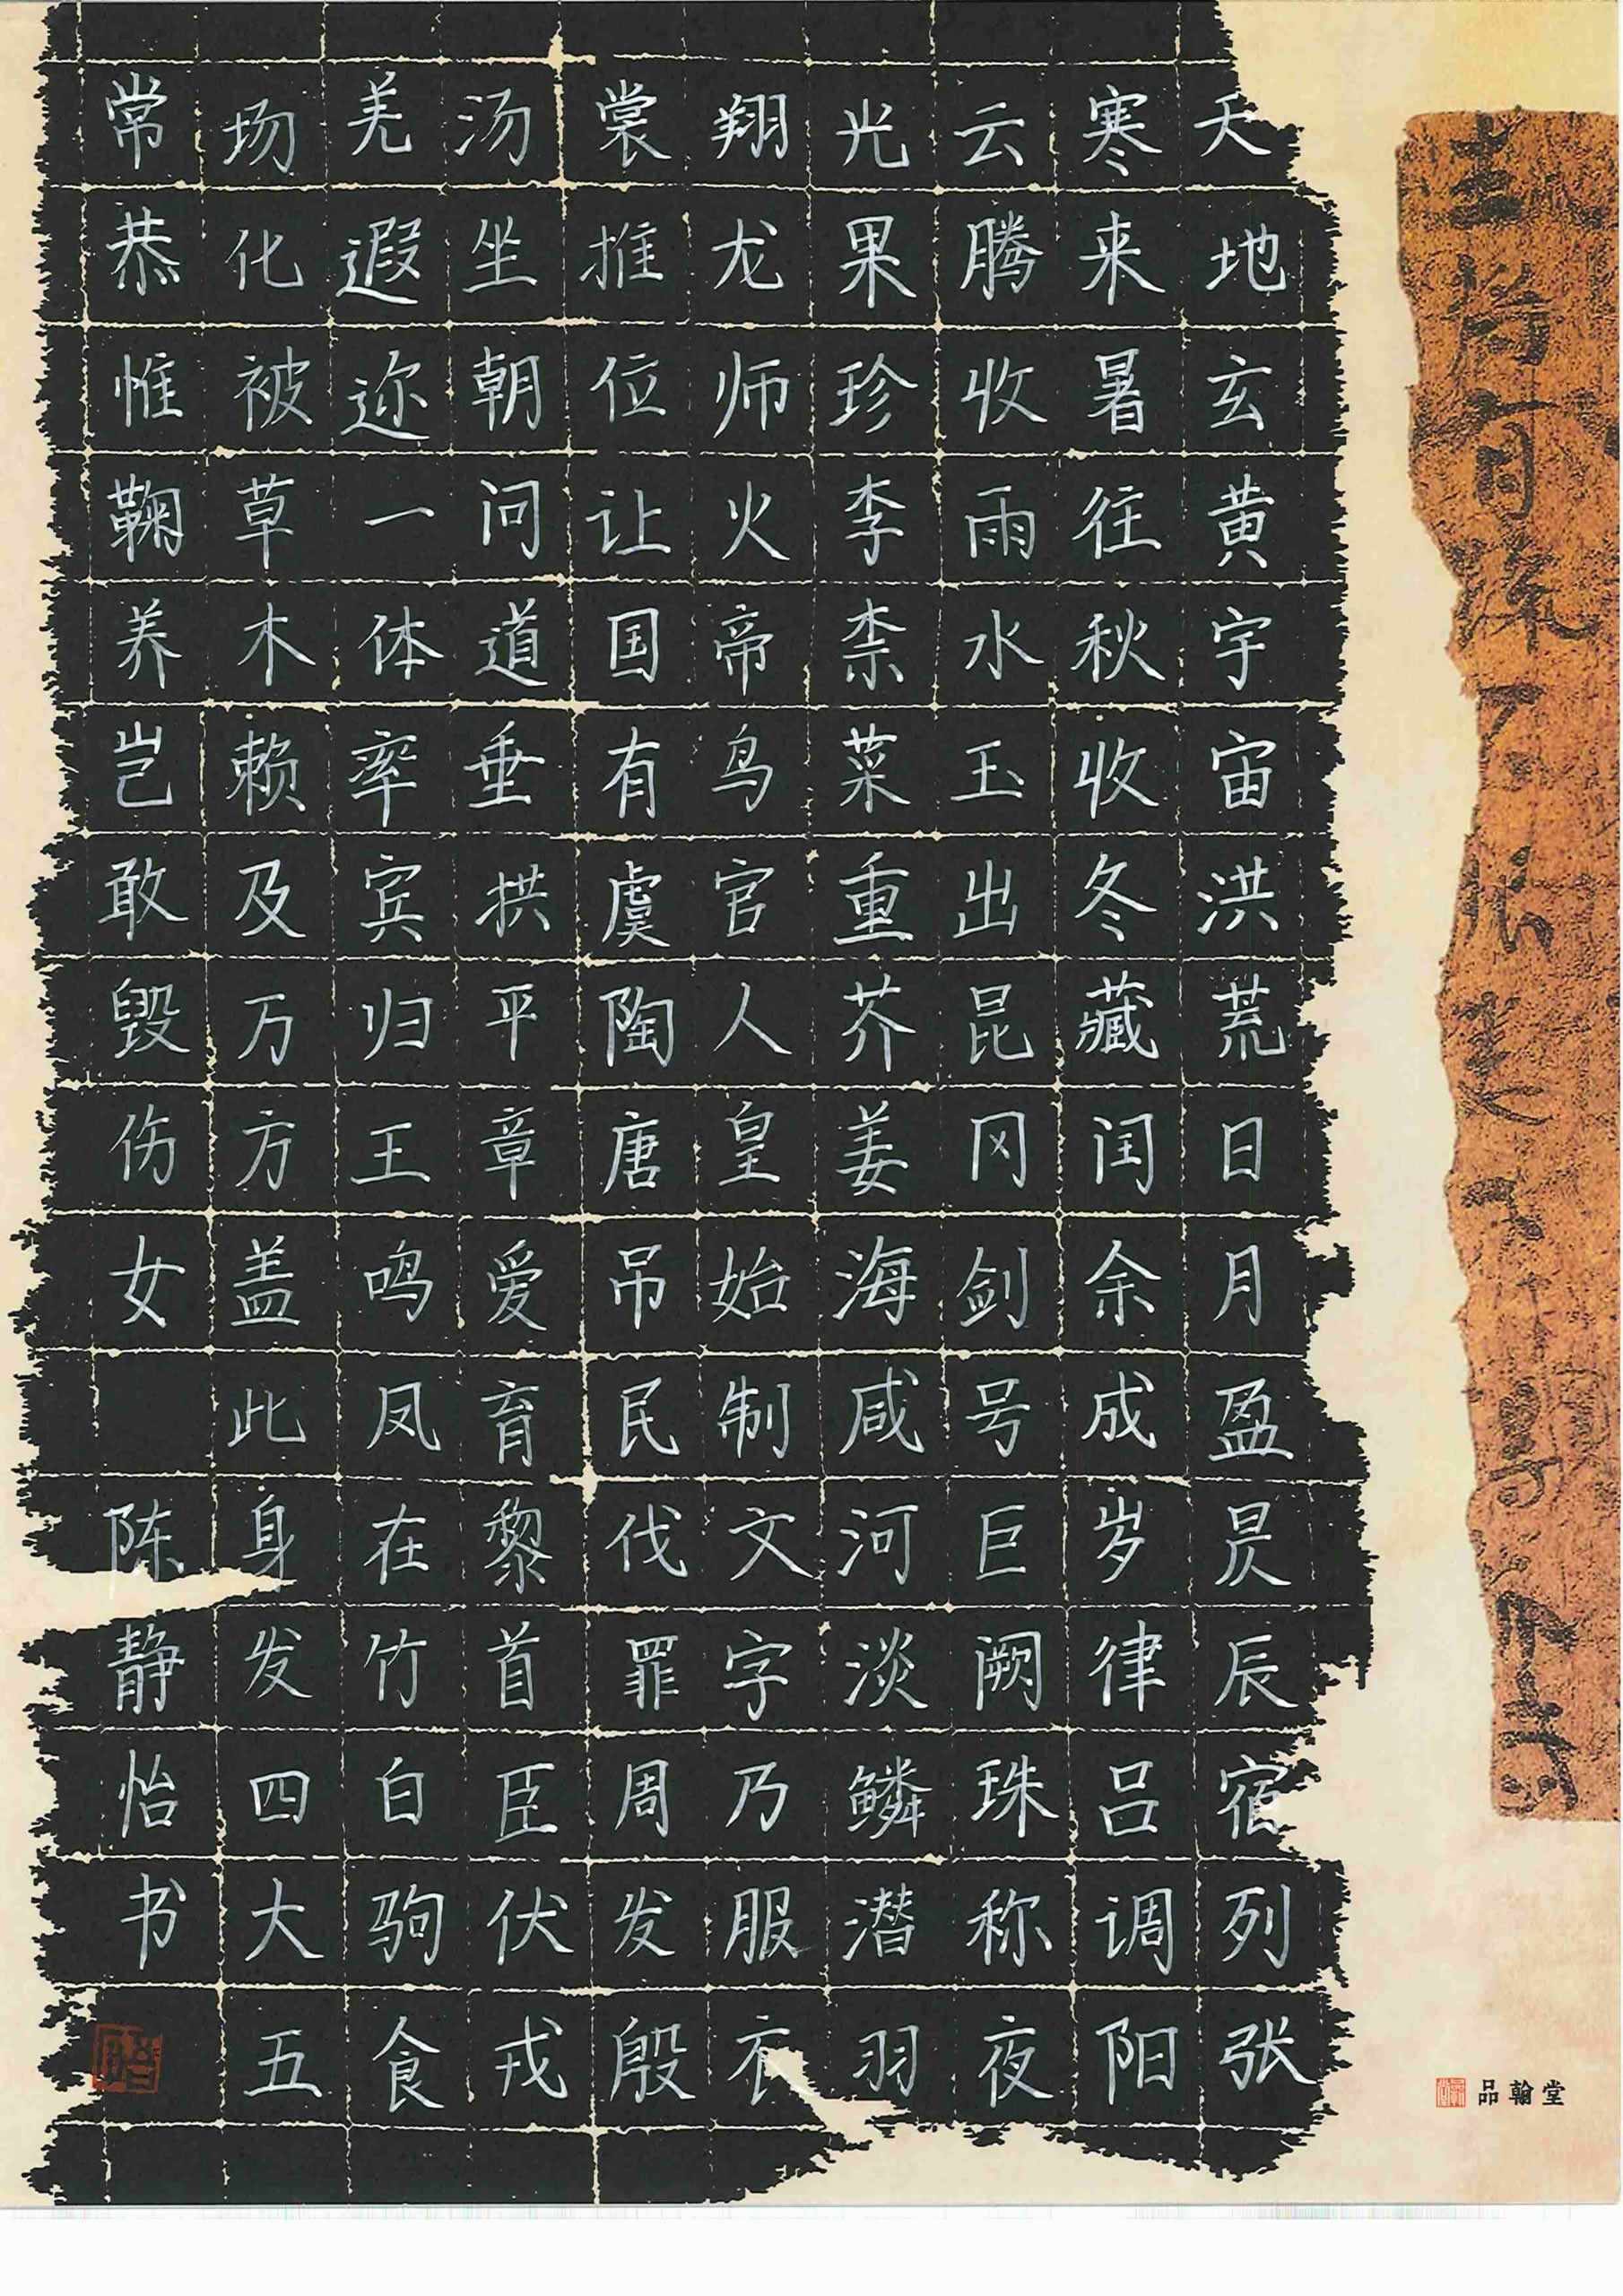 天地玄黄宇宙洪荒日月盈昃辰宿列张
寒来暑往秋收冬藏闰余成岁律吕调阳
云腾收雨水玉出昆冈剑号巨阙珠称夜
光果珍李柰菜重芥姜海咸河淡鳞潜羽
翔龙师火帝鸟官人皇始制文字乃服衣
裳推位让国有虞陶唐吊民伐罪周发殷
汤坐朝问道垂拱平章爱育黎首臣伏戎
羌遐迩一体率宾归王鸣凤在竹白驹食
场化被草木赖及万方盖此身发四大五
常恭惟鞠养岂敢毁伤女 陈静怡书
品翰堂